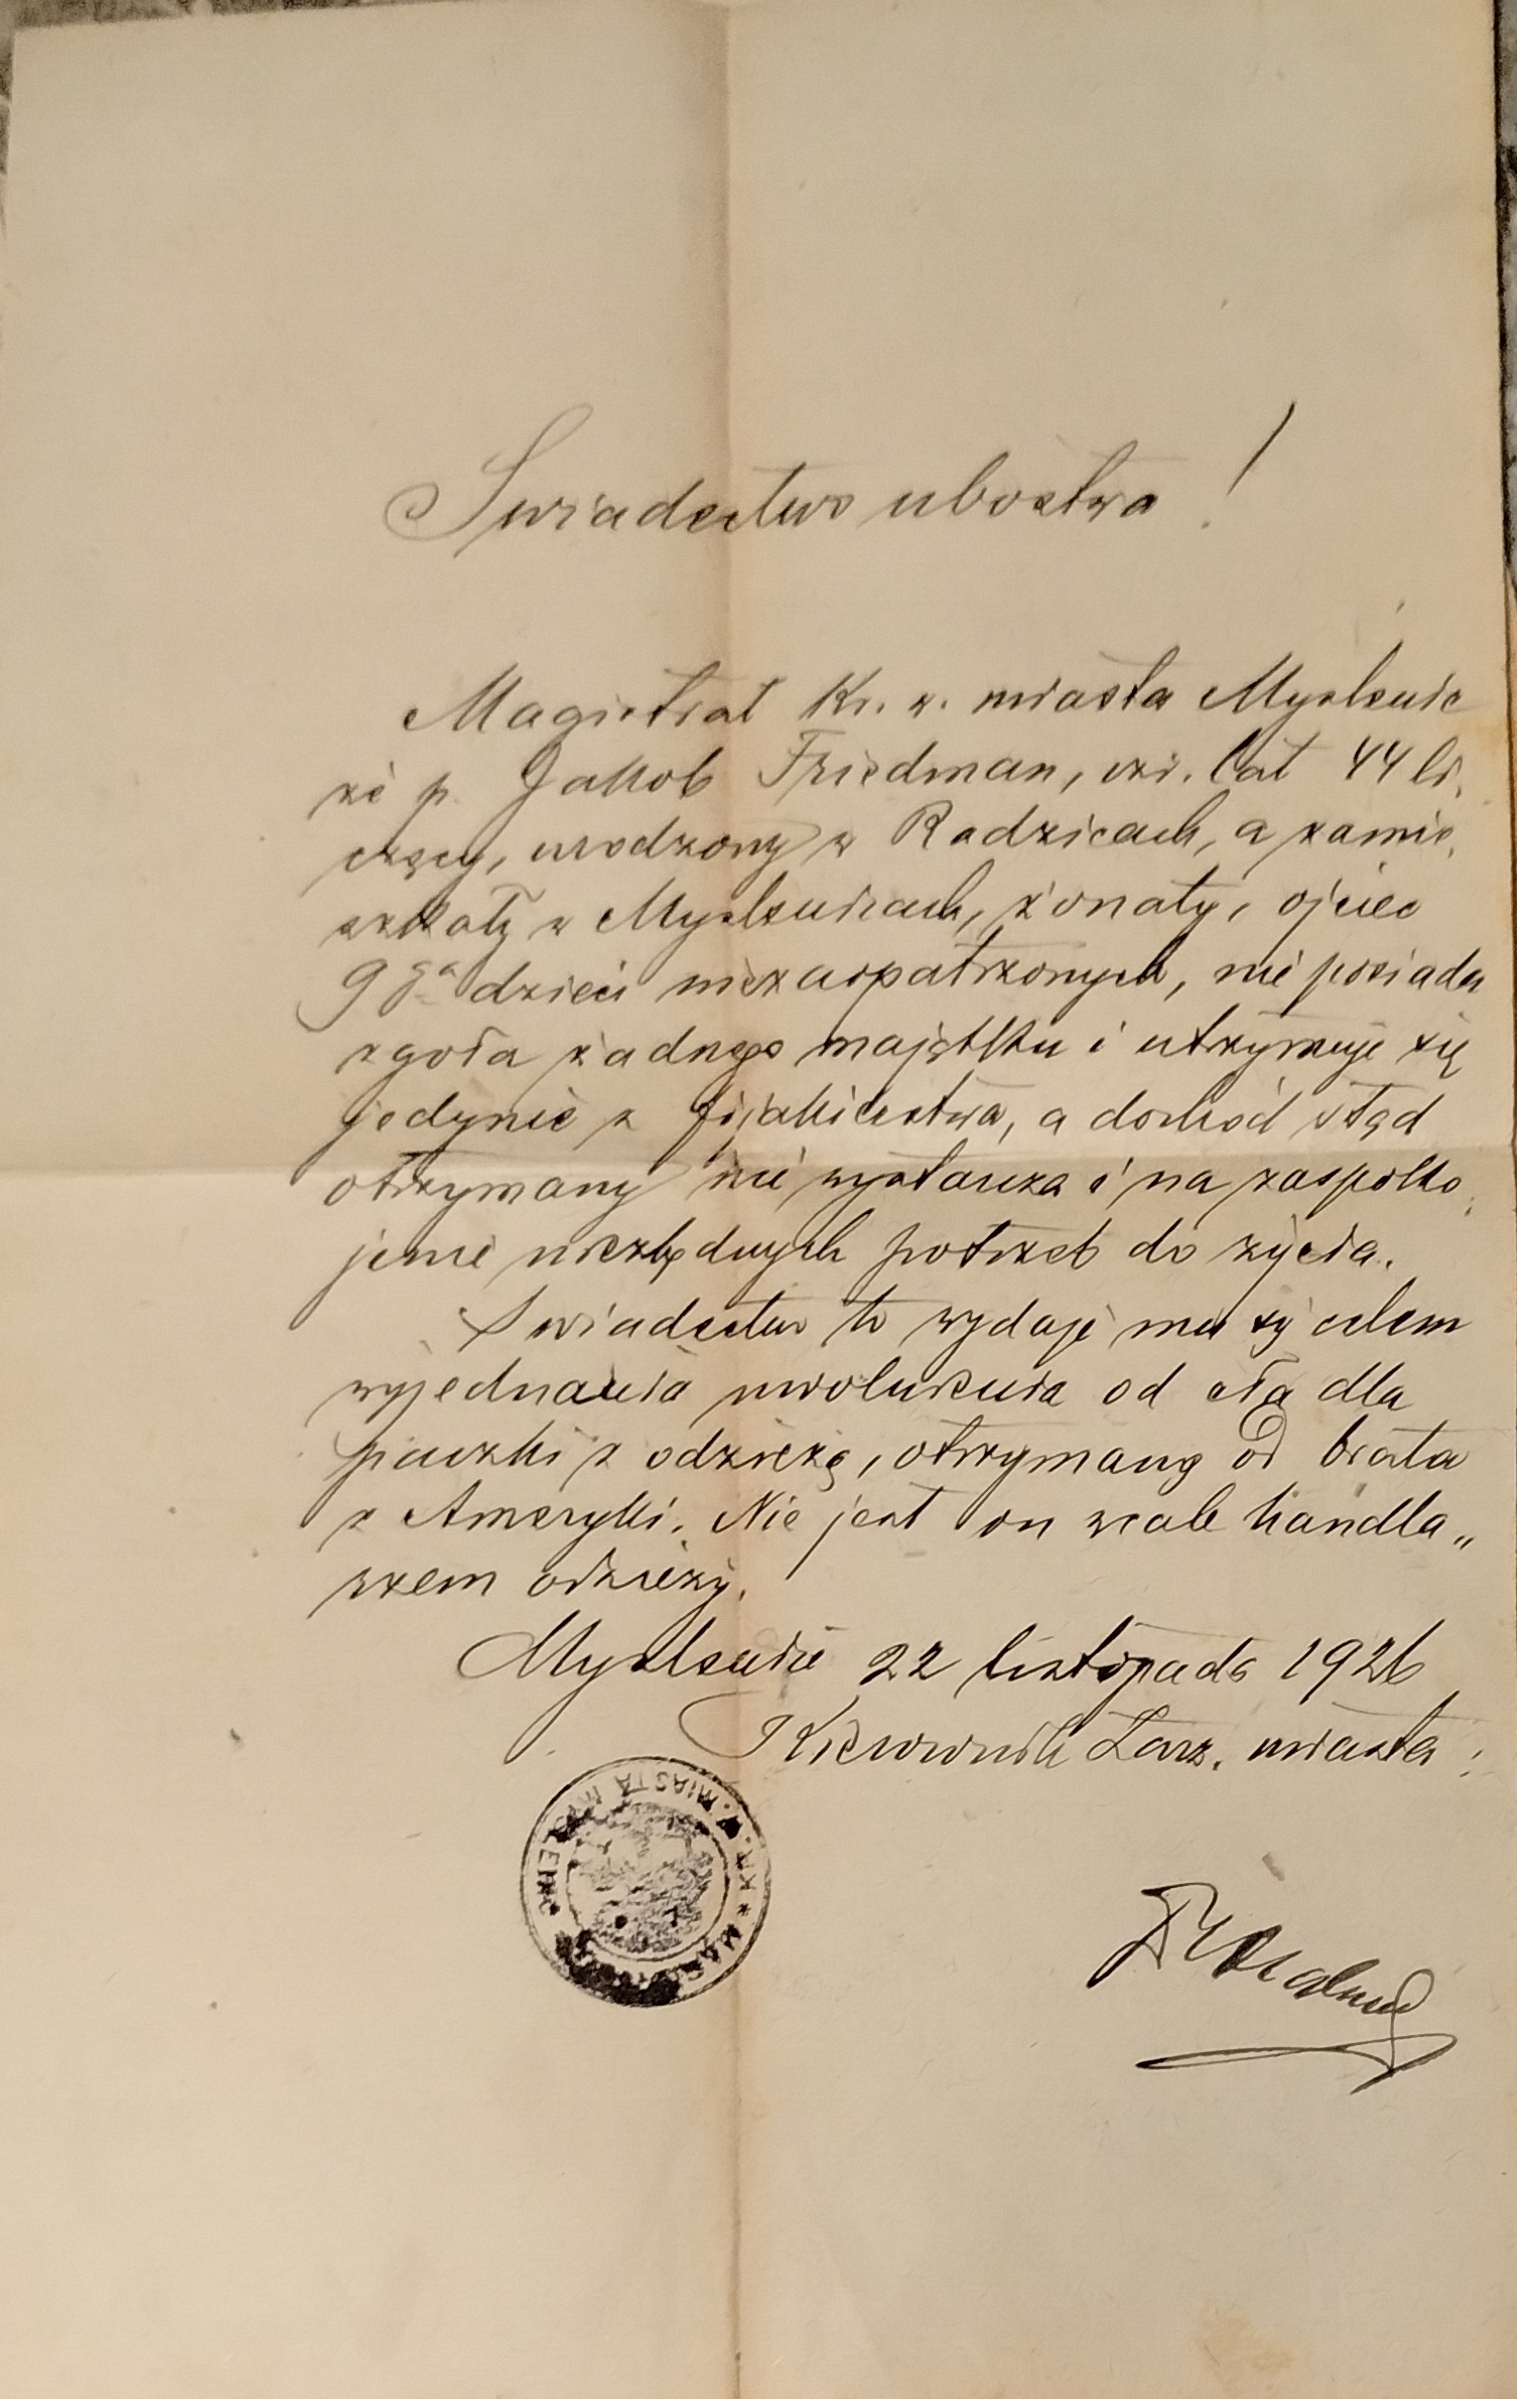 Swiadectwo ubóstwa!
Magistrat Kr. w. miasta Myslenic
że p. Jakob Friedman, izr. lat 44 li-
czący, urodzony w Radzicach, a zamie-
szkały w Myslenicach, żonaty, ojciec
9ga dzieci niezaopatrzonych, nie posiada
zgoła żadnego majątku i utrzymuje się
jedynie z fijakierstwa, a dochód stąd
otrzymany nie wystarcza i na zaspoko-
jenie niezbędnych potrzeb do życia.
Swiadectwo to wydaje mu się celem
wyjednania uwolnienia od cła dla
paczki z odzieżą, otrzymaną od brata
z Ameryki. Nie jest on wcale handla„
rzem odzieży.
Myslenice 22 listopada 1926
Kierownik Zarz. miasta:
* MAG KR. W. MIASTA MYŚLENIC